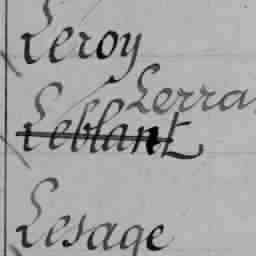 Leroy
Lerra
Leblant
Lesage